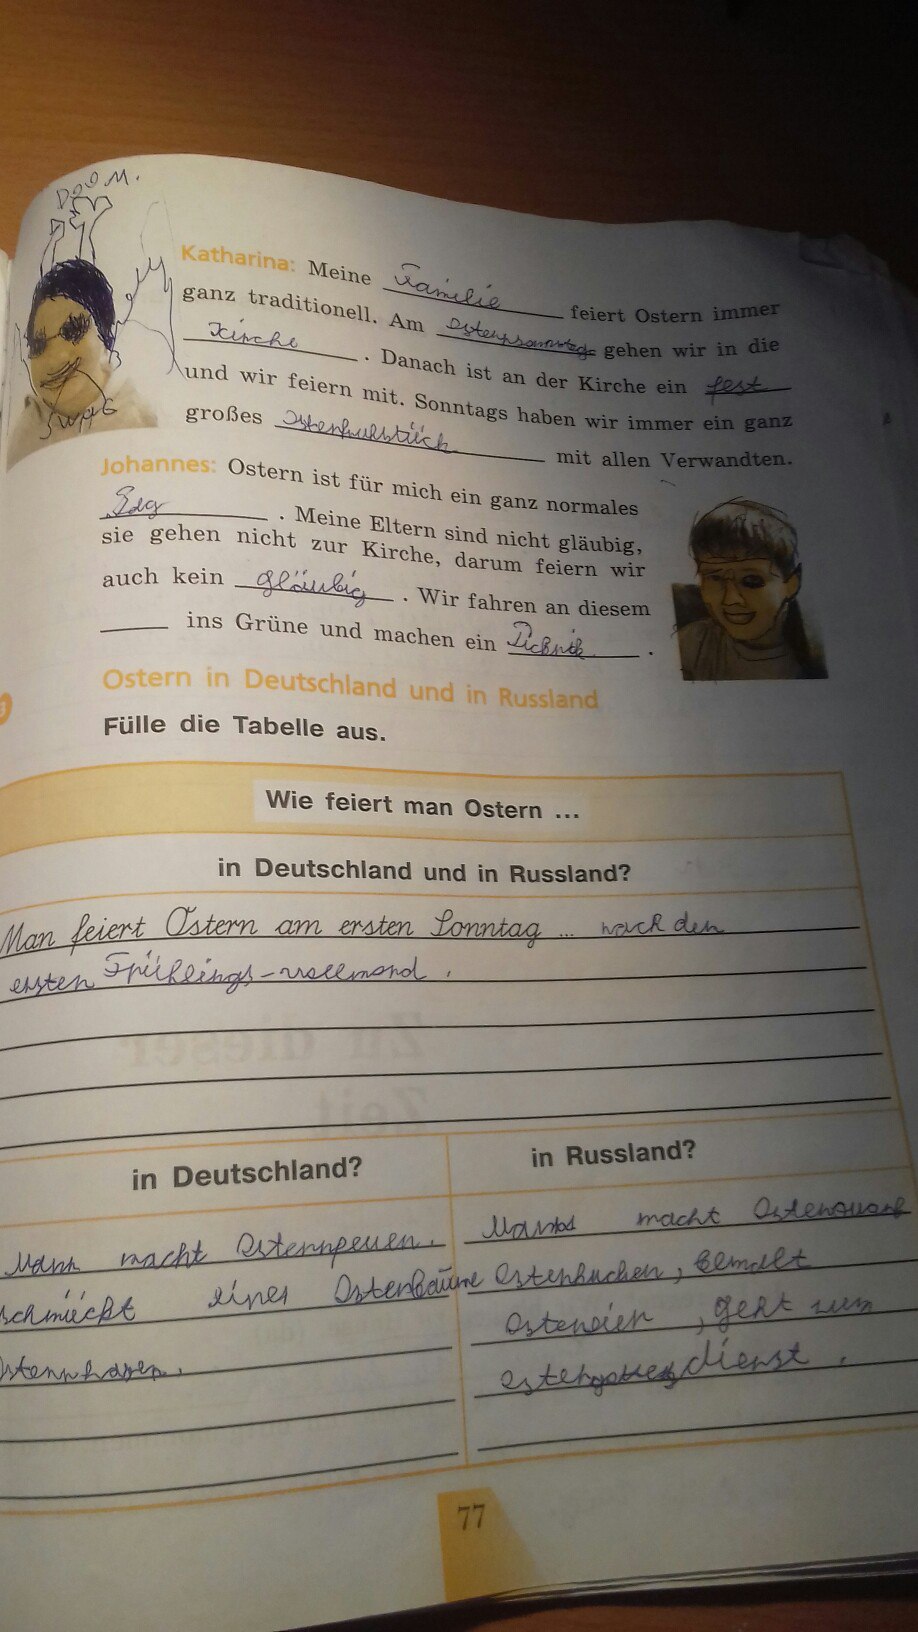 DOOM.
SWAG
Katharina: Meine Familie feiert Ostern immer
ganz traditionell. Am Ostersonntag gehen wir in die
Kirche . Danach ist an der Kirche ein fest
und wir feiern mit. Sonntags haben wir immer ein ganz
großes mit allen Verwandten.
Johannes: Ostern ist für mich ein ganz normales
. Meine Eltern sind nicht gläubig,
sie gehen nicht zur Kirche, darum feiern wir
auch kein gläubig . Wir fahren an diesem
____ ins Grüne und machen ein Picknick .
Ostern in Deutschland und in Russland
Fülle die Tabelle aus.
Wie feiert man Ostern ...
in Deutschland und in Russland?
Man feiert Ostern am ersten Sonntag ... nach den
ersten Frühlings-vollmond .
in Deutschland?
in Russland?
Mann macht
schmückt eines Osterbäume
macht
Osterkuchen, bemalt
Ostereier , geht zum
dienst .
77